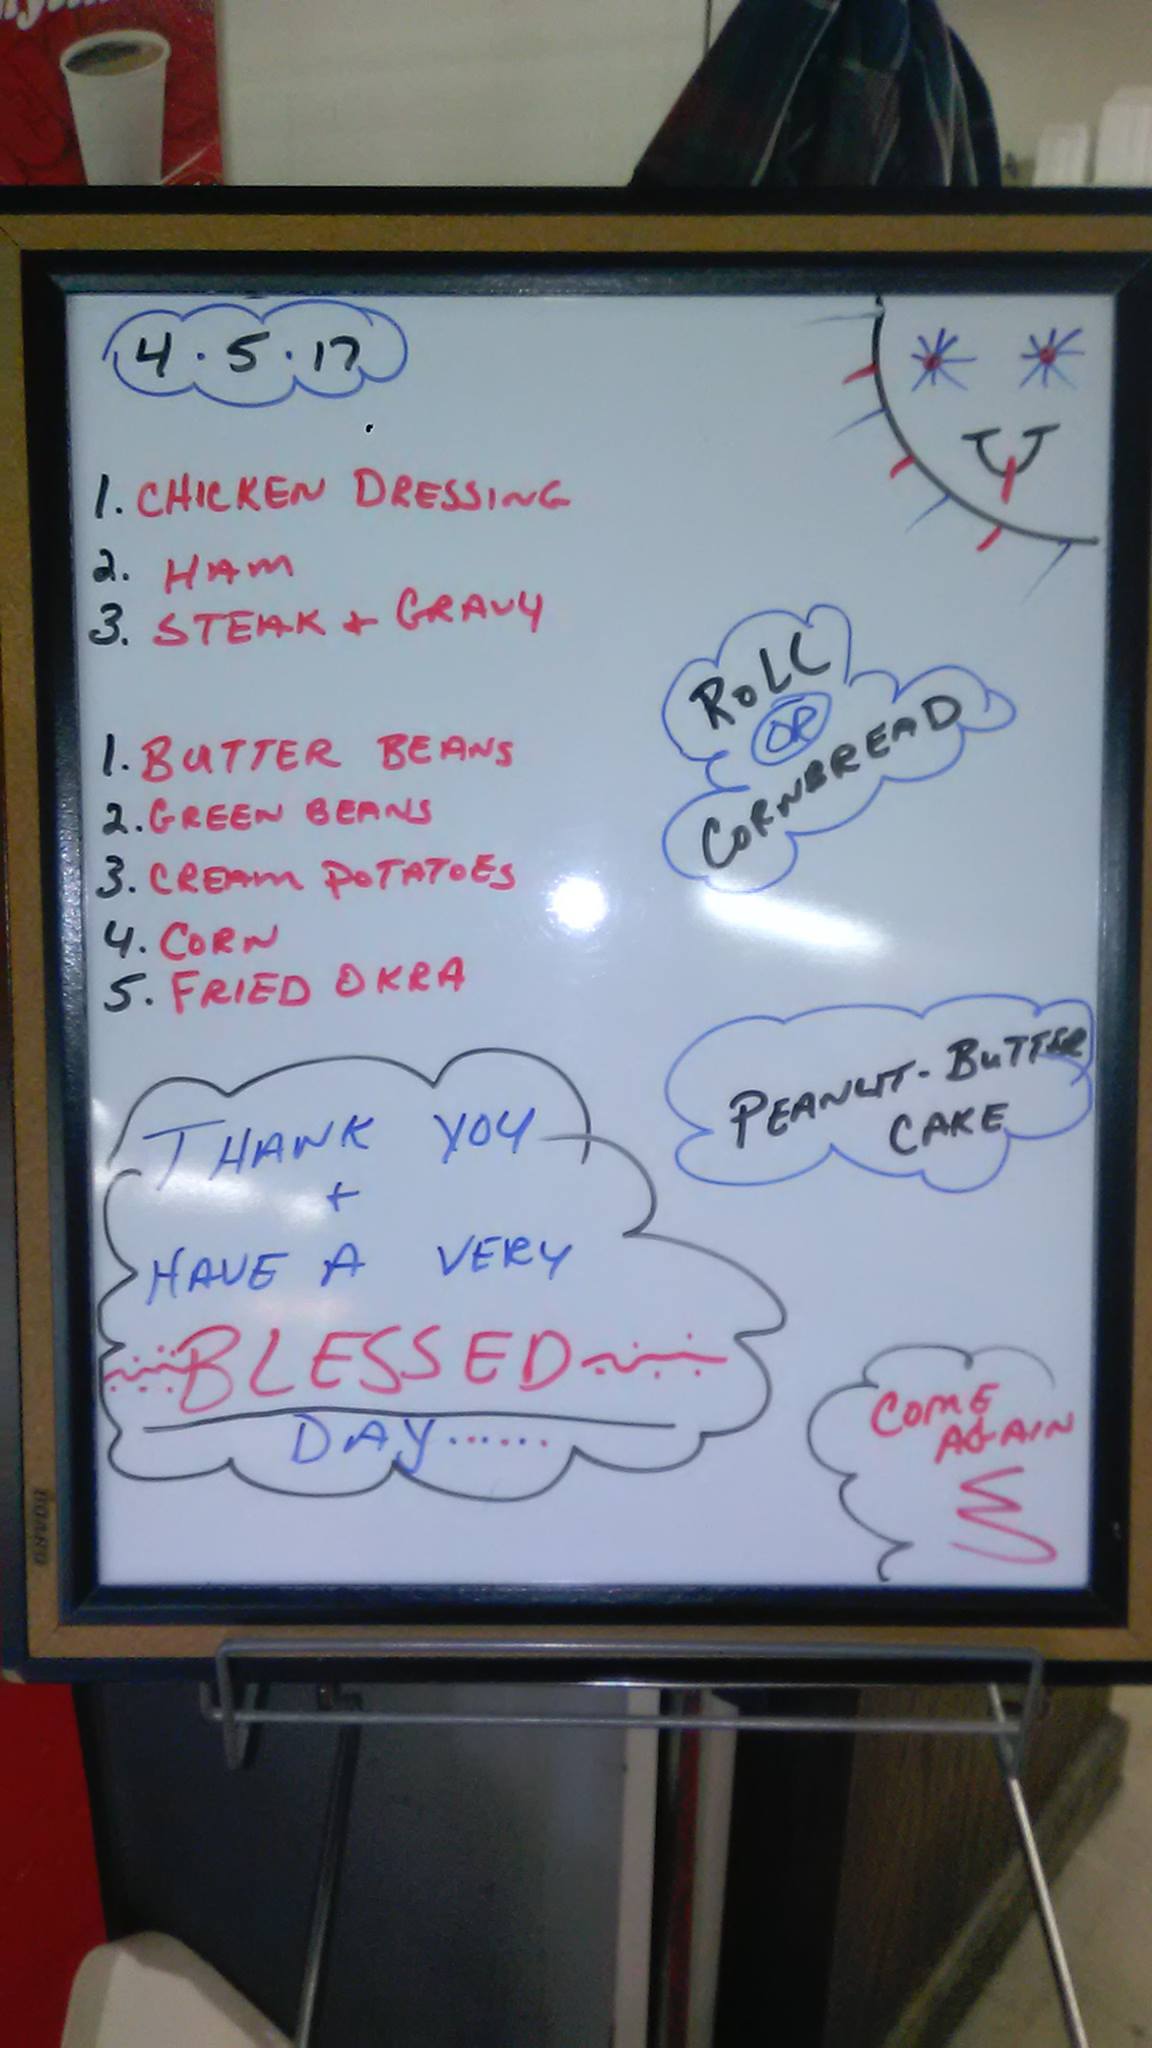 4.5.17
1. CHICKEN DRESSING
2. HAM
3. STEAK + GRAVY
ROLL
OR
CORNBREAD
1. BUTTER BEANS
2. GREEN BEANS
3. CREAM POTATOES
4. CORN
5. FRIED OKRA
PEANUT-BUTTER
CAKE
THANK YOU
+
HAVE A VERY
BLESSED
DAY......
COME
AGAIN
BOARD